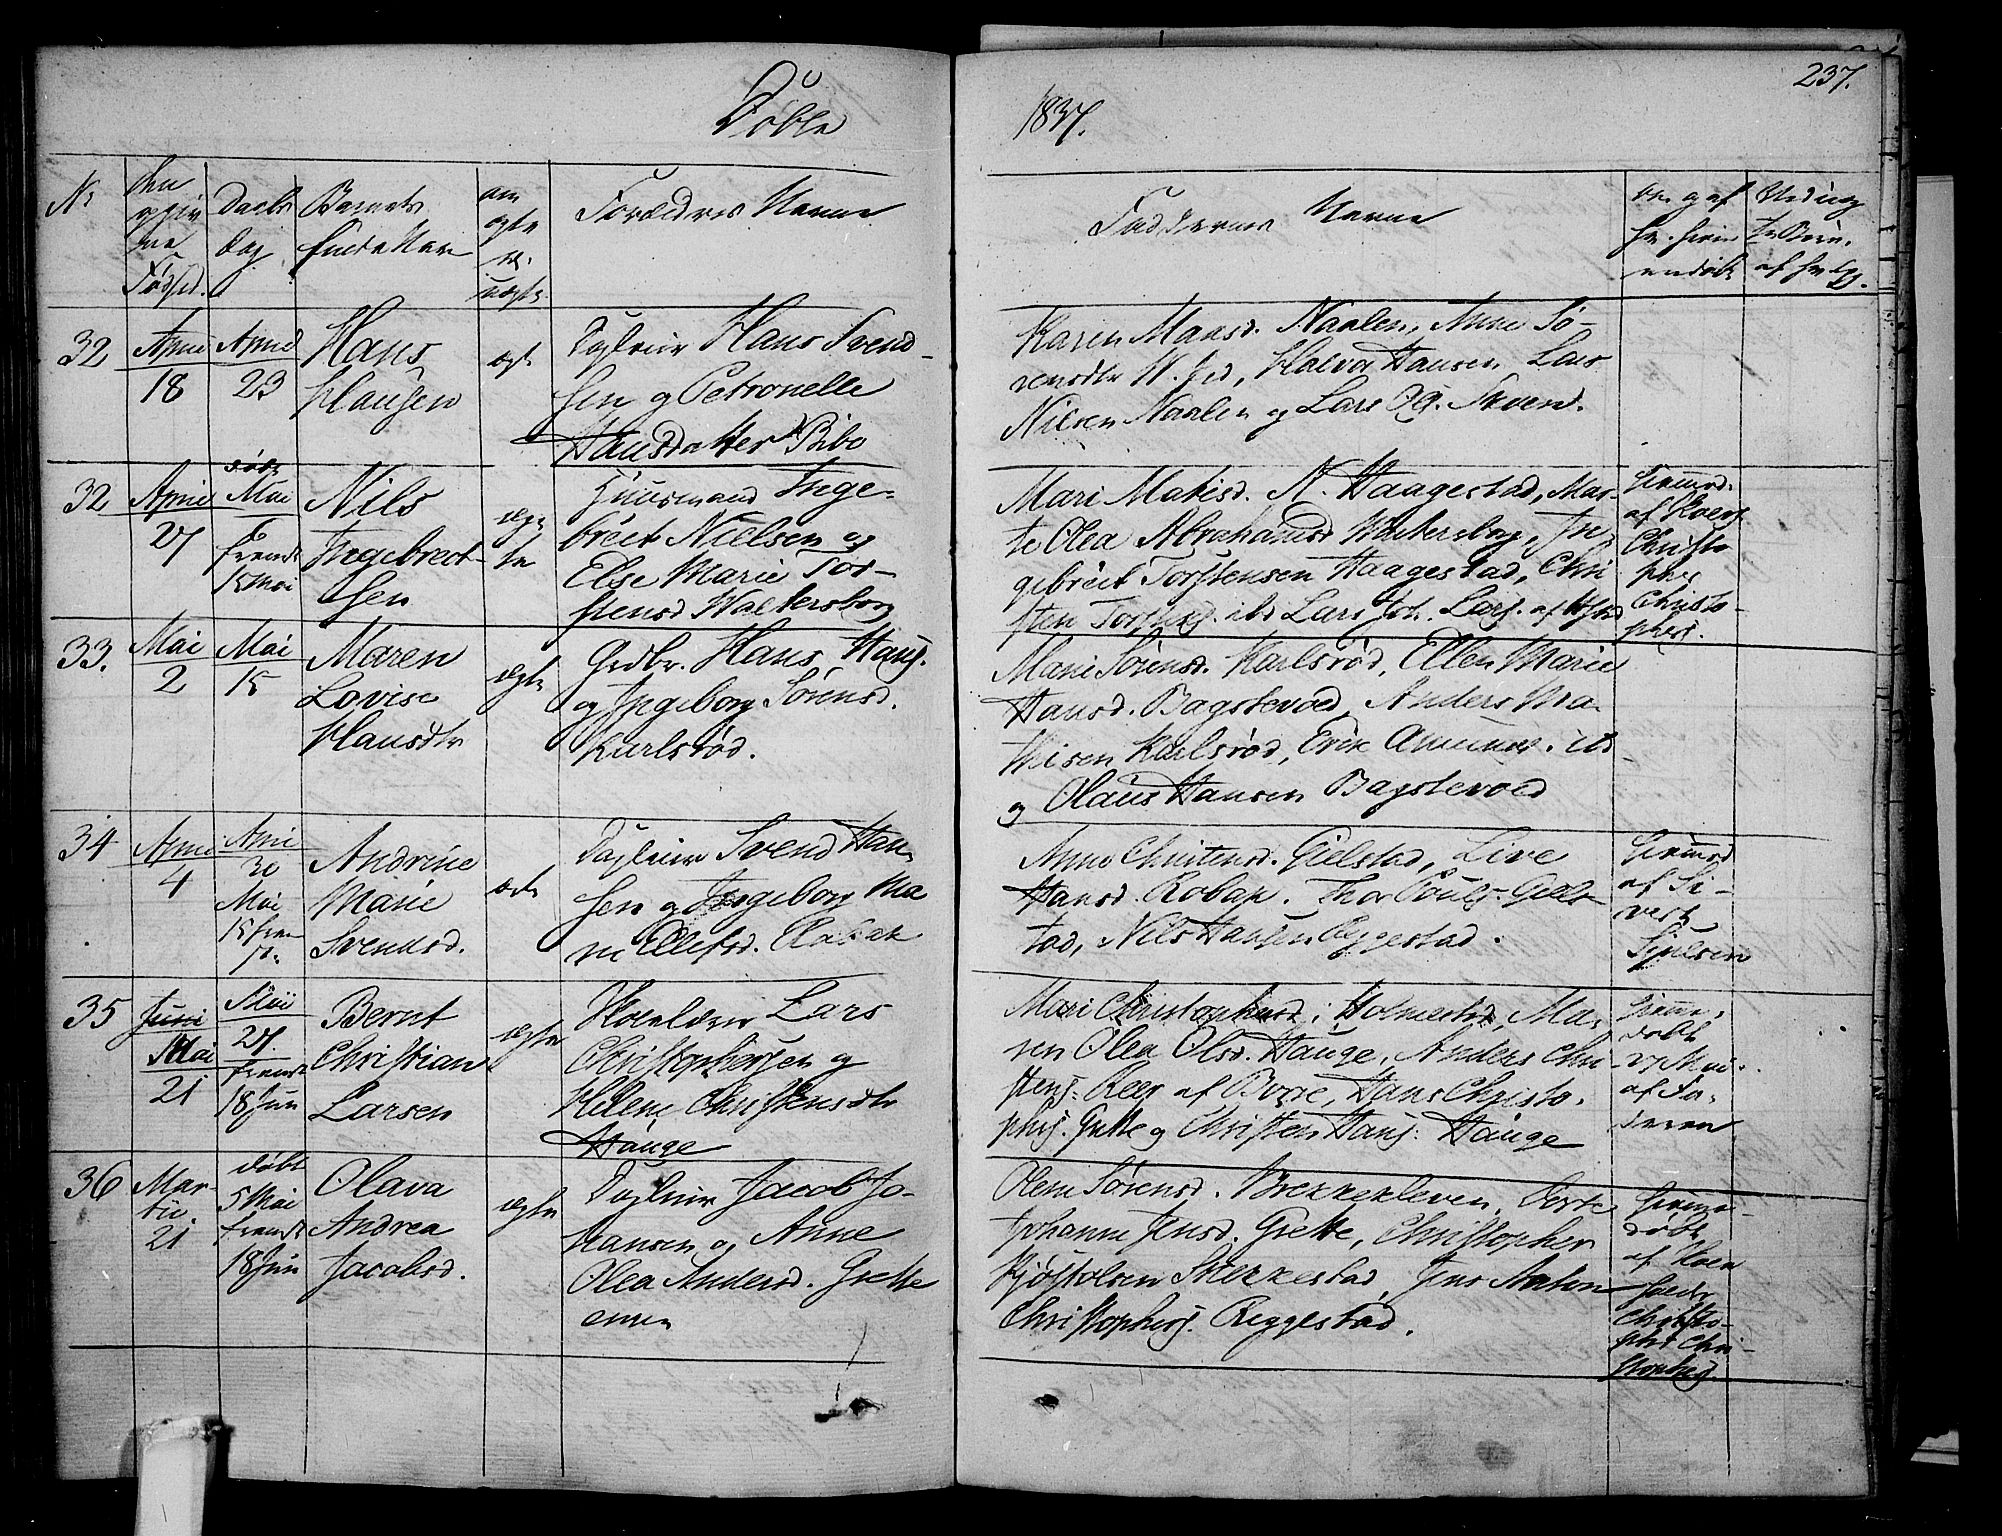 Døbte
1837.
237.
No
Daabs
dag
Barnets
fulde Navn
om
ægte
el.
uægte
Forældres Navne
Faddernes Navne
32
April
18
April
23
Hans
Hansen
ægte
Hans Svend-
sen og Petronelle
Hansdatter Bibo
Karen Maasd. Naalen, Anne Sø-
rensdtr, Halvor Hansen, Lars
Nilsen Naalen og Lars
32
April
27
døbt
Mai
fremst
15 Mai
Nils
Ingebrect-
sen
æg-
te
Huusmand Inge-
bret Nielsen og
Else Marie Tor-
stensd Waltersborg
Mari Matisd. N. Haagestad, Mar-
te Olea Abrahamsd Waltersborg, In-
gebret Torstensen Haagestad, Chri-
sten
Hiemd.
af
Christo
pher
Christo-
phers.
33.
Mai
2
Mai
15
Maren
Lovise
Hansdtr
ægte
Grdbr. Hans Hans.
og Ingeborg Sørensd.
Karlsrød.
Marie Sørensd. Karlsrød, Ellen Marie
Hansd. Bagstevold, Anders Ma-
thisen Karlsrød, Erik
og Olaus Hansen Bagstevold
34
April
4
April
30
Mai
15 frem
Andrine
Marie
Svendsd.
ægte
Svend Han-
sen og Ingeborg Ma-
rie Ellefsd. Robak
Anne Christensd. Gielstad, Live
Hansd. Robak. Thor Pouls. Giels-
tad, Nils Hansen Reggestad.
Hiemd
af Si-
vert
35
Juni
Mai
21
Mai
27.
fremst
18 Jun
Bernt
Christian
Larsen
ægte
Lars
Christophersen og
Helene Christensdtr
Hauge
Mari Christophersd. Holmestad, Ma-
ren Olea Olsd. Hauge, Anders Chri-
stens. Reer af Borre, Hans Christo-
phers. Grette og Christen Hans. Hauge
Hiemme-
døbt
27 Mai
af Fa-
deren
36
Mar-
tii
21
døbt
5 Mai
fremst
18 Jun
Olava
Andrea
Jacobsd.
ægte
Jacob Jo-
hansen og Anne
Olea Andersd. Grette
eien
Olene Sørensd. Brekkekleven, Dorte
Johanne Jensd. Grette, Christopher
Kjøstolsen Stekkestad, Jens Anton
Christophers. Reggestad.
Hiemme-
døbt
af
Christo-
pher Chri-
stophers